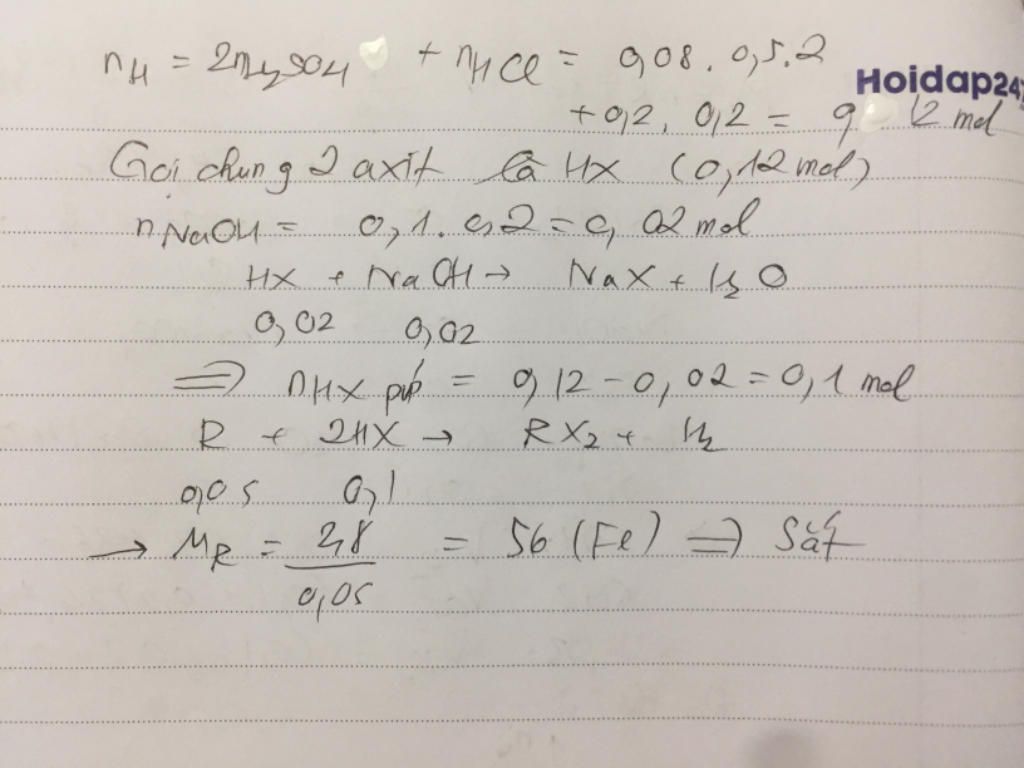 nH = 2nH2SO4 + nHCl = 0,08. 0,5.2
Hoidap247
+0,2. 0,2 = 0, 12 mol
Gọi chung 2 axit là HX (0,12 mol)
nNaOH = 0,1. 0,2 = 0, 02 mol
HX + NaOH → NaX + H2O
0,02 0,02
=> nHX pứ = 0,12 - 0,02 = 0,1 mol
R + 2HX → RX2 + H2
0,05 0,1
→ MR = 2,8 / 0,05 = 56 (Fe) => Sắt